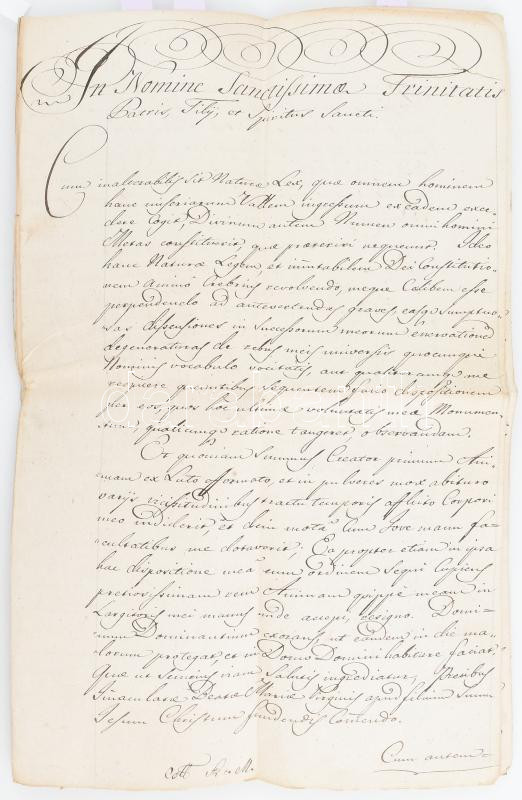 In Nomine Sanctissimæ Trinitatis
Patris, Filij, et Spiritus Sancti.
Cum inalterabilis sit Naturæ Lex, quæ omnem hominem
hanc miseriarum Vallem ingressum ex eadem exce-
dere cogit, Divinum autem Numen omni homini
Metas constituerit, quæ præteriri nequeunt. Ideo
hanc Naturæ Legem, et immutabilem Dei Constitutio-
nem Animo crebrius revolvendo, meque Cælibem esse
perpendendo ad antevertendas graves, easque sumptuo-
sas dissensiones in Successorum meorum enervationem
degeneraturas de rebus meis universis quocunque
Nominis vocabulo vocitatis, aut qualitercunque me
respicere quæuntibus sequentem facio dispositionem
per eos, quos hoc ultimæ voluntatis meæ Monumen-
tum, qualicunque ratione tangeret, observandam.
Et quoniam Summus Creator primum Ani-
mam ex Luto efformato, et in pulveres mox abituro
varijs vicissitudinibus tractu temporis afflicto Corpori
meo indiderit, et dein motâ Cum Fove manu fa-
cultatibus me dotaverit: Ea propter etiam in ipsa
hac dispositione meâ eum ordinem Sequi Cupiens
pretiosissimam rem Animam quippe meam in
Largitoris mei manus unde accepi, resigno. Domi-
num Dominantium exorans, ut eandem in die ma-
lorum protegat, et in Domo Domini habitare faciat.
Quæ ut Semitis iram Salutis ingrediatur, Precibus
Immaculatæ Beatæ Mariæ Virginis apud filium Suum
Jesum Christum fundendis Comendo.
Cum autem